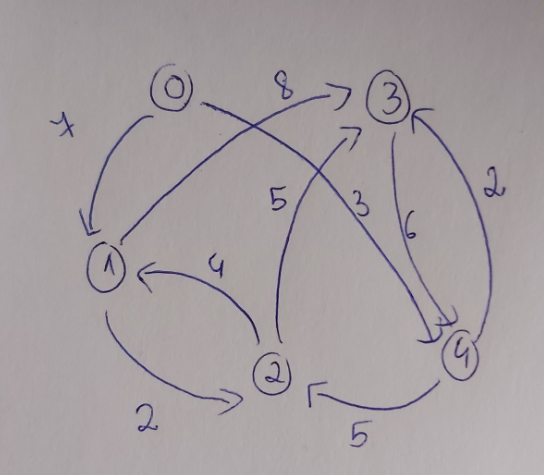 0
8
3
7
5
3
2
6
1
4
2
4
2
5